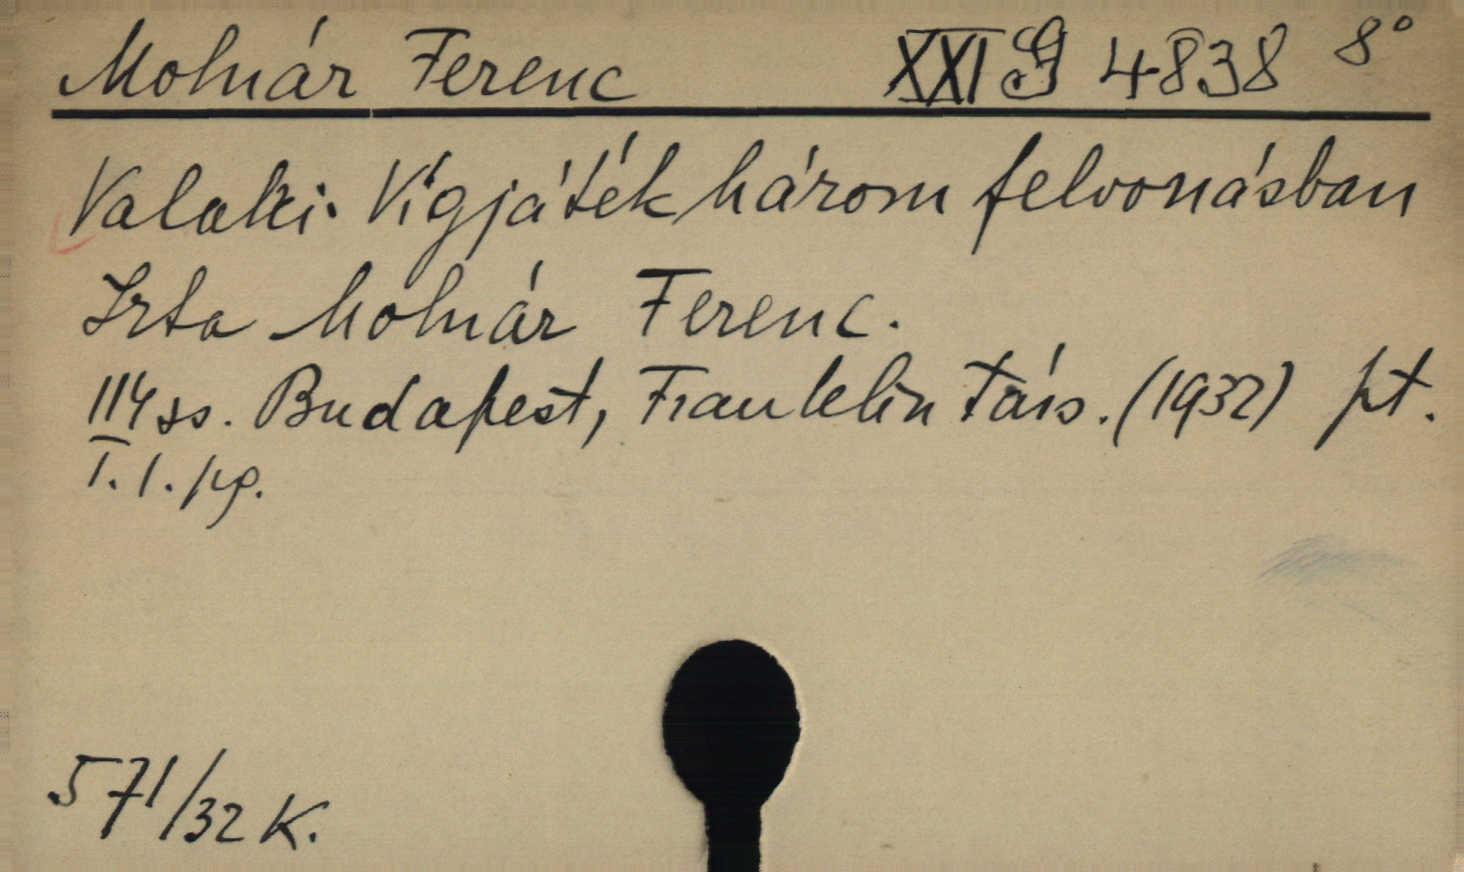 Molnár Ferenc XXI G 4838 8°
Valaki. Vígjáték három felvonásban
Irta Molnár Ferenc.
114 ss. Budapest, Franklin Társ. (1932) pt.
I. 1. pg.
571/32 K.